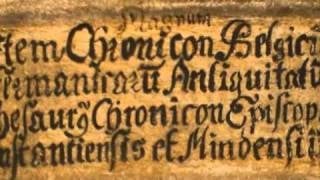 Magnum
Item Chronicon Belgicu
ermanicarū Antiquitatū
hesaurꝰ Chronicon Episcop
nstantiensis et Mindensiū